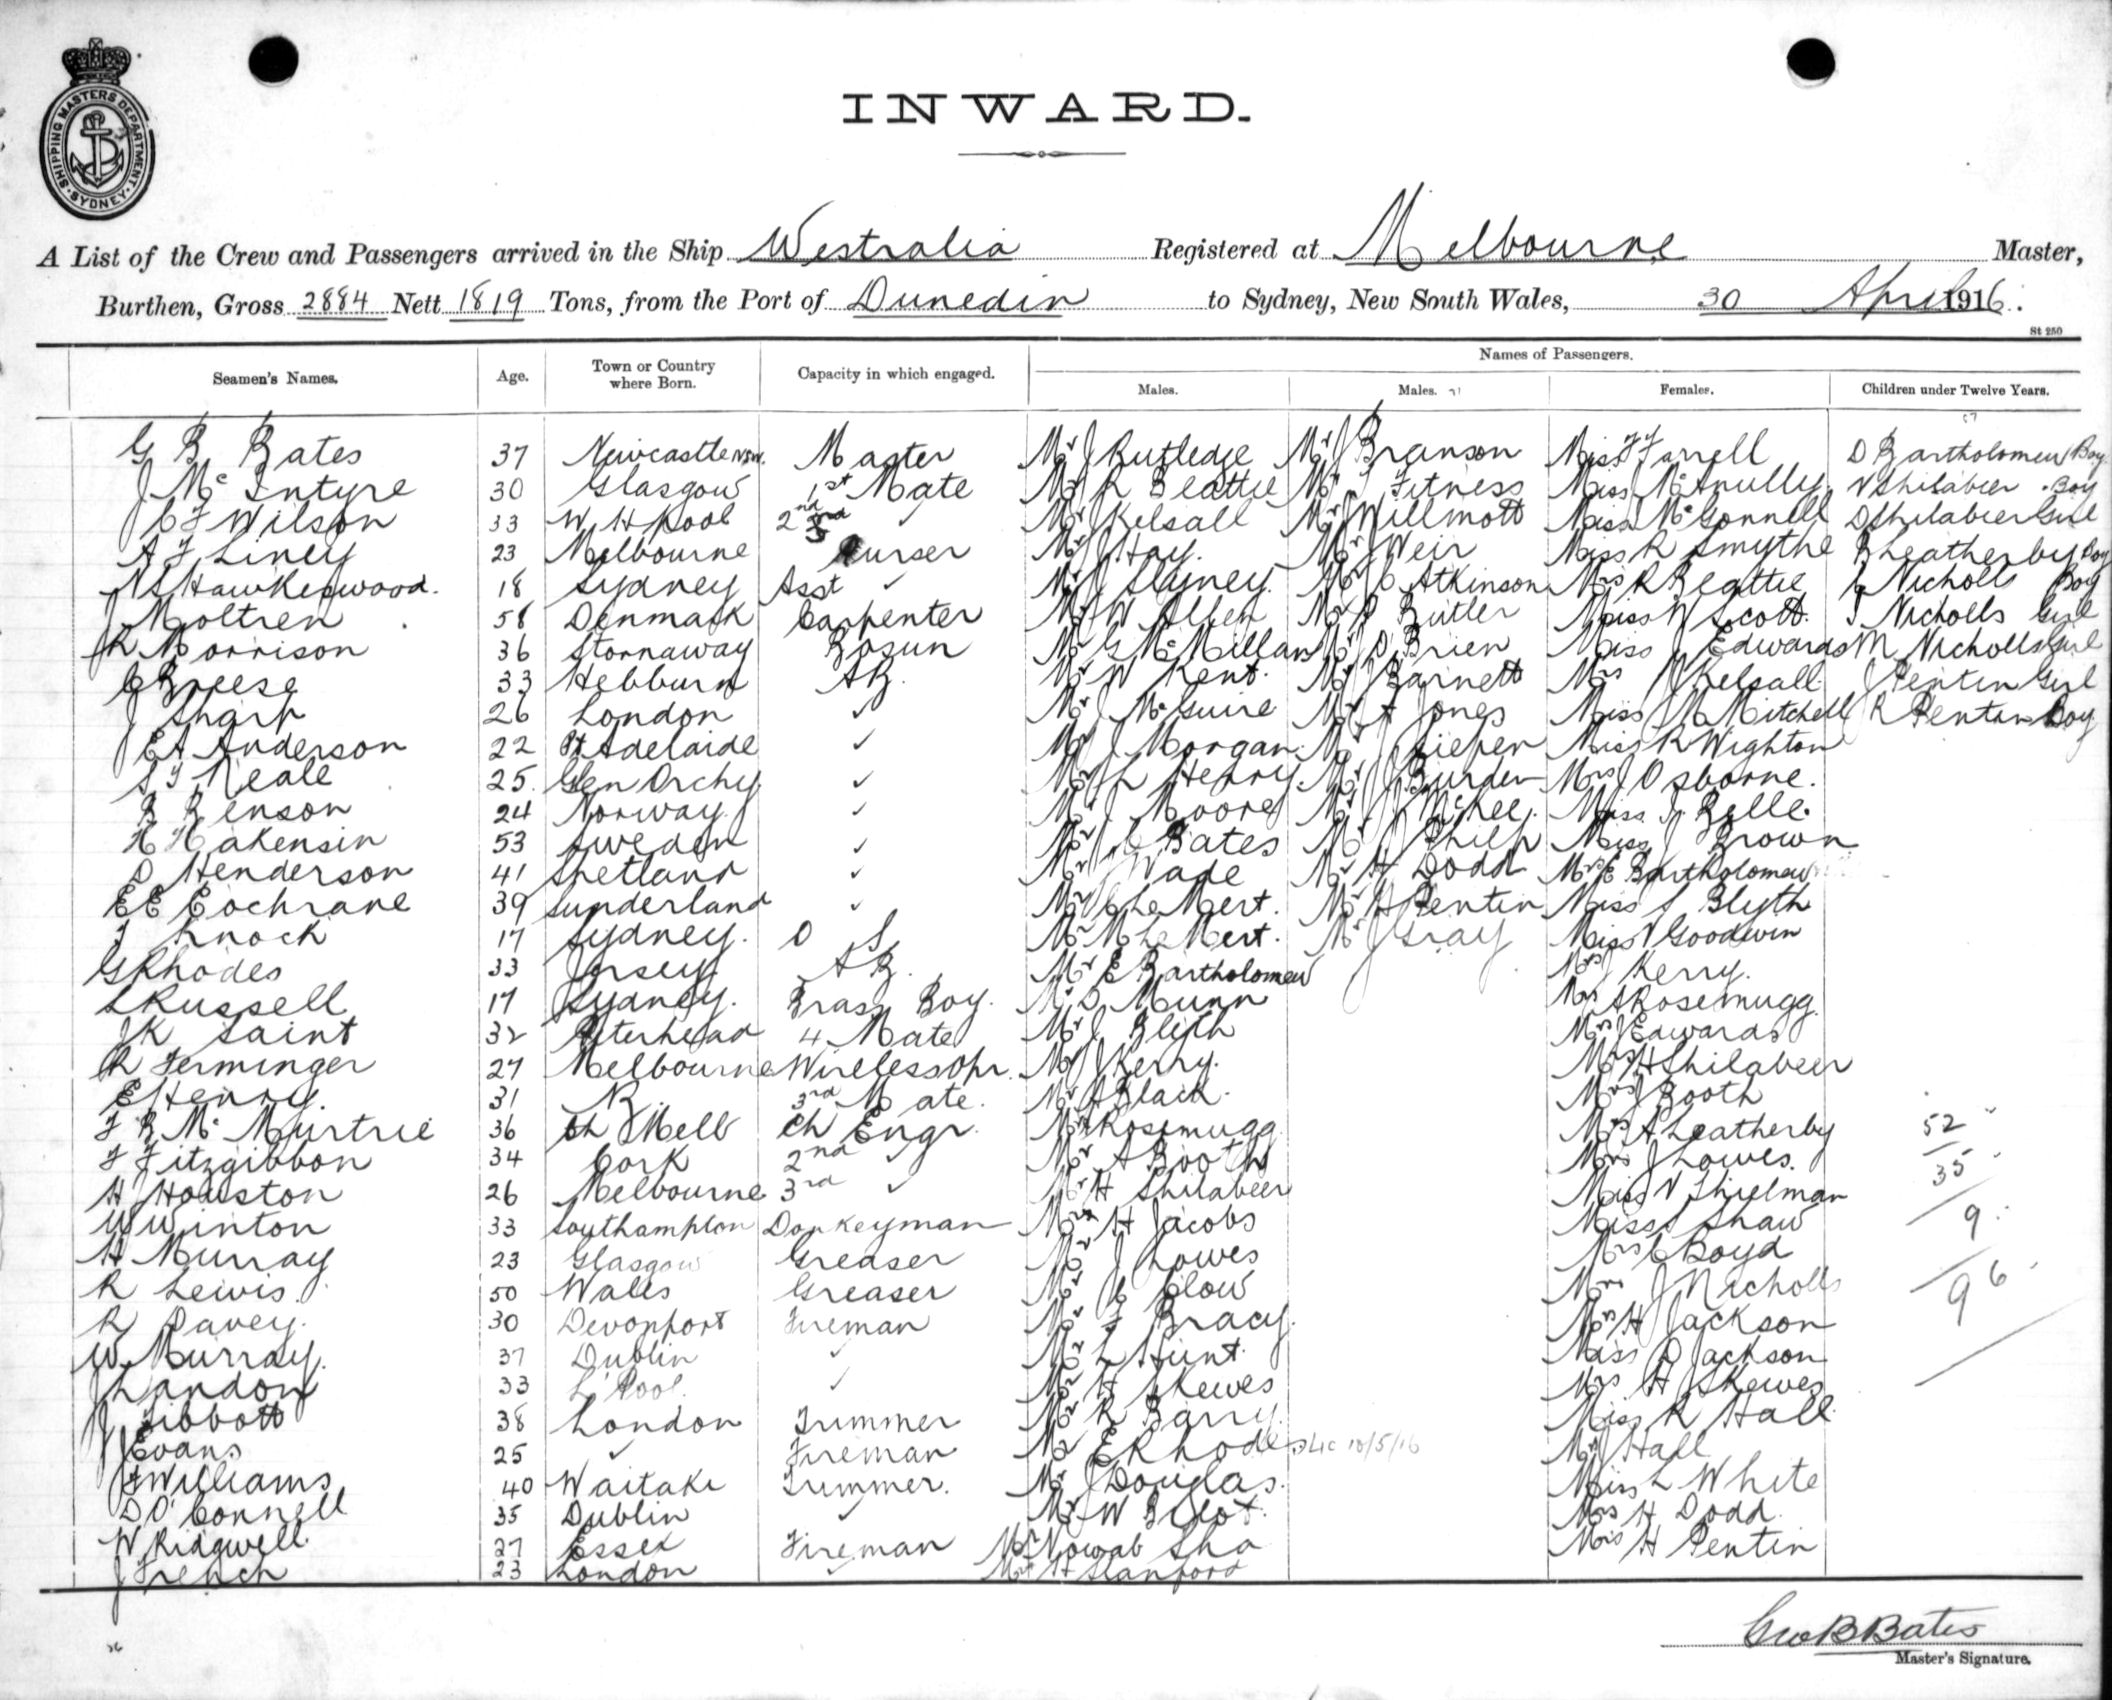 SHIPPING MASTERS DEPARTMENT. SYDNEY
INWARD.
A List of the Crew and Passengers arrived in the Ship Westralia Registered at Melbourne Master,
Burthen, Gross 2884 Nett 1819 Tons, from the Port of Dunedin to Sydney, New South Wales, 30 April 1916.
St 250
Seamen's Names. Age. Town or Country where Born. Capacity in which engaged. Names of Passengers.
Males. Males. Females. Children under Twelve Years.
G B Bates 37 Newcastle NSW. Master Mr J Rutledge Mr J Branson Miss F Farrell D Bartholomew Boy
J McIntyre 30 Glasgow 1st Mate Mr R Beattie Mr Fitness Miss McAnully N Shilabier Boy
C F Wilson 33 W H Pool 2nd ✓ Mr J Kelsall Mr J Willmott Miss McGonnell D Shilabier Girl
A F Liney 23 Melbourne Purser Mr J Hay. Mr J Weir Miss R Smythe R Leatherby Boy
N S Hawkenwood. 18 Sydney Asst ✓ Mr J Slyney. Mr C Atkinson Mrs R Beattie Nicholls Boy
J Moltren 58 Denmark Carpenter Mr W Allen Mr Butler Miss W Scott. I Nicholls Girl
R Morrison 36 Stornaway Bosun Mr G McMillan Mr J O'Brien Miss J Edwards M Nicholls Girl
C Breese 33 Hebburn AB. Mr W Kent. Mr J Barnett Mrs J Kelsall J Pentin Girl
J Sharp 26 London ✓ Mr J McGuire Mr A Jones Miss M Mitchell R Pentin Boy
E A Anderson 22 Pt Adelaide ✓ Mr J Morgan. Mr Siepen Miss R Wighton
S J Neale 25. Glen Orchy ✓ Mr L Henry. Mr J Burden Mrs J Osborne.
B Benson 24 Norway. ✓ Mr J Moore Mr J McKee. Miss J Belle.
H Hakensin 53 Sweden ✓ Mr C Bates Mr J Philp Miss J Brown
D Henderson 41 Shetland ✓ Mr Wade Mr H Dodd Mrs E Bartholomew
E E Cochrane 39 Sunderland ✓ Mr C Le Mert. Mr H Pentin Miss S Blyth
Knock 17 Sydney. O S. Mr M Le Mert. Mr J Gray Miss V Goodwin
G Rhodes 33 Jersey. AB. Mr E Bartholomew Mrs J Kerry.
L Russell 17 Sydney. Brass Boy. Mr D Munn Mrs A Rosemugg.
J K Saint 32 Peterhead 4 Mate Mr J Blyth Mrs J Edwards
R Ferminger 27 Melbourne Wireless Opr. Mr J Kerry. Mrs H Shilabeer
E Henry. 31 N. 3rd Mate. Mr A Black. Mrs J Booth
F R McMurtrie 36 Sth Melb Ch Engr. Mr A Rosemugg. Mrs A Leatherby 52
F Fitzgibbon 34 Cork 2nd ✓ Mr A Booth Mrs J Lowes. 35
H Houston 26 Melbourne 3rd ✓ Mr H Shilabeer Miss V Shielman
W Winton 33 Southampton Donkeyman Mr H Jacobs Miss S Shaw 9
H Murray 23 Glasgow Greaser Mr J Lowes Mrs C Boyd
R Lewis. 50 Wales Greaser Mr C Clow Mrs J Nicholls 96
R Davey. 30 Devonport Fireman Mr F Bracy. Mrs H Jackson
W Murray. 37 Dublin ✓ Mr L Hunt. Miss D Jackson
J Landon 33 L'Pool. ✓ Mr H Skewes Mrs H Skewes
J Tibbott 38 London Trimmer Mr R Barry. Miss R Hall.
J Evans 25 ✓ Fireman Mr E Rhodes 10/5/16 Mrs J Hall
F Williams 40 Waitaki Trimmer. Mr J Douglas. Miss L White
D O'Connell 35 Dublin ✓ Mr W Bilot. Mrs H Dodd.
W Ridgwell. 27 Essex Fireman Mr Nowab Sha Mrs H Pentin
J French 23 London ✓ Mr H Stanford
Geo B Bates
Master's Signature.